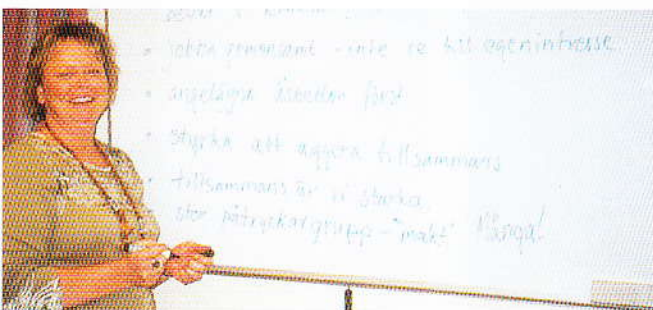 • jobba gemensamt - inte se till egenintresse.
• angelägna först
• styrka att agera tillsammans
• tillsammans är vi starka
stor påtryckargrupp - "makt" Många!